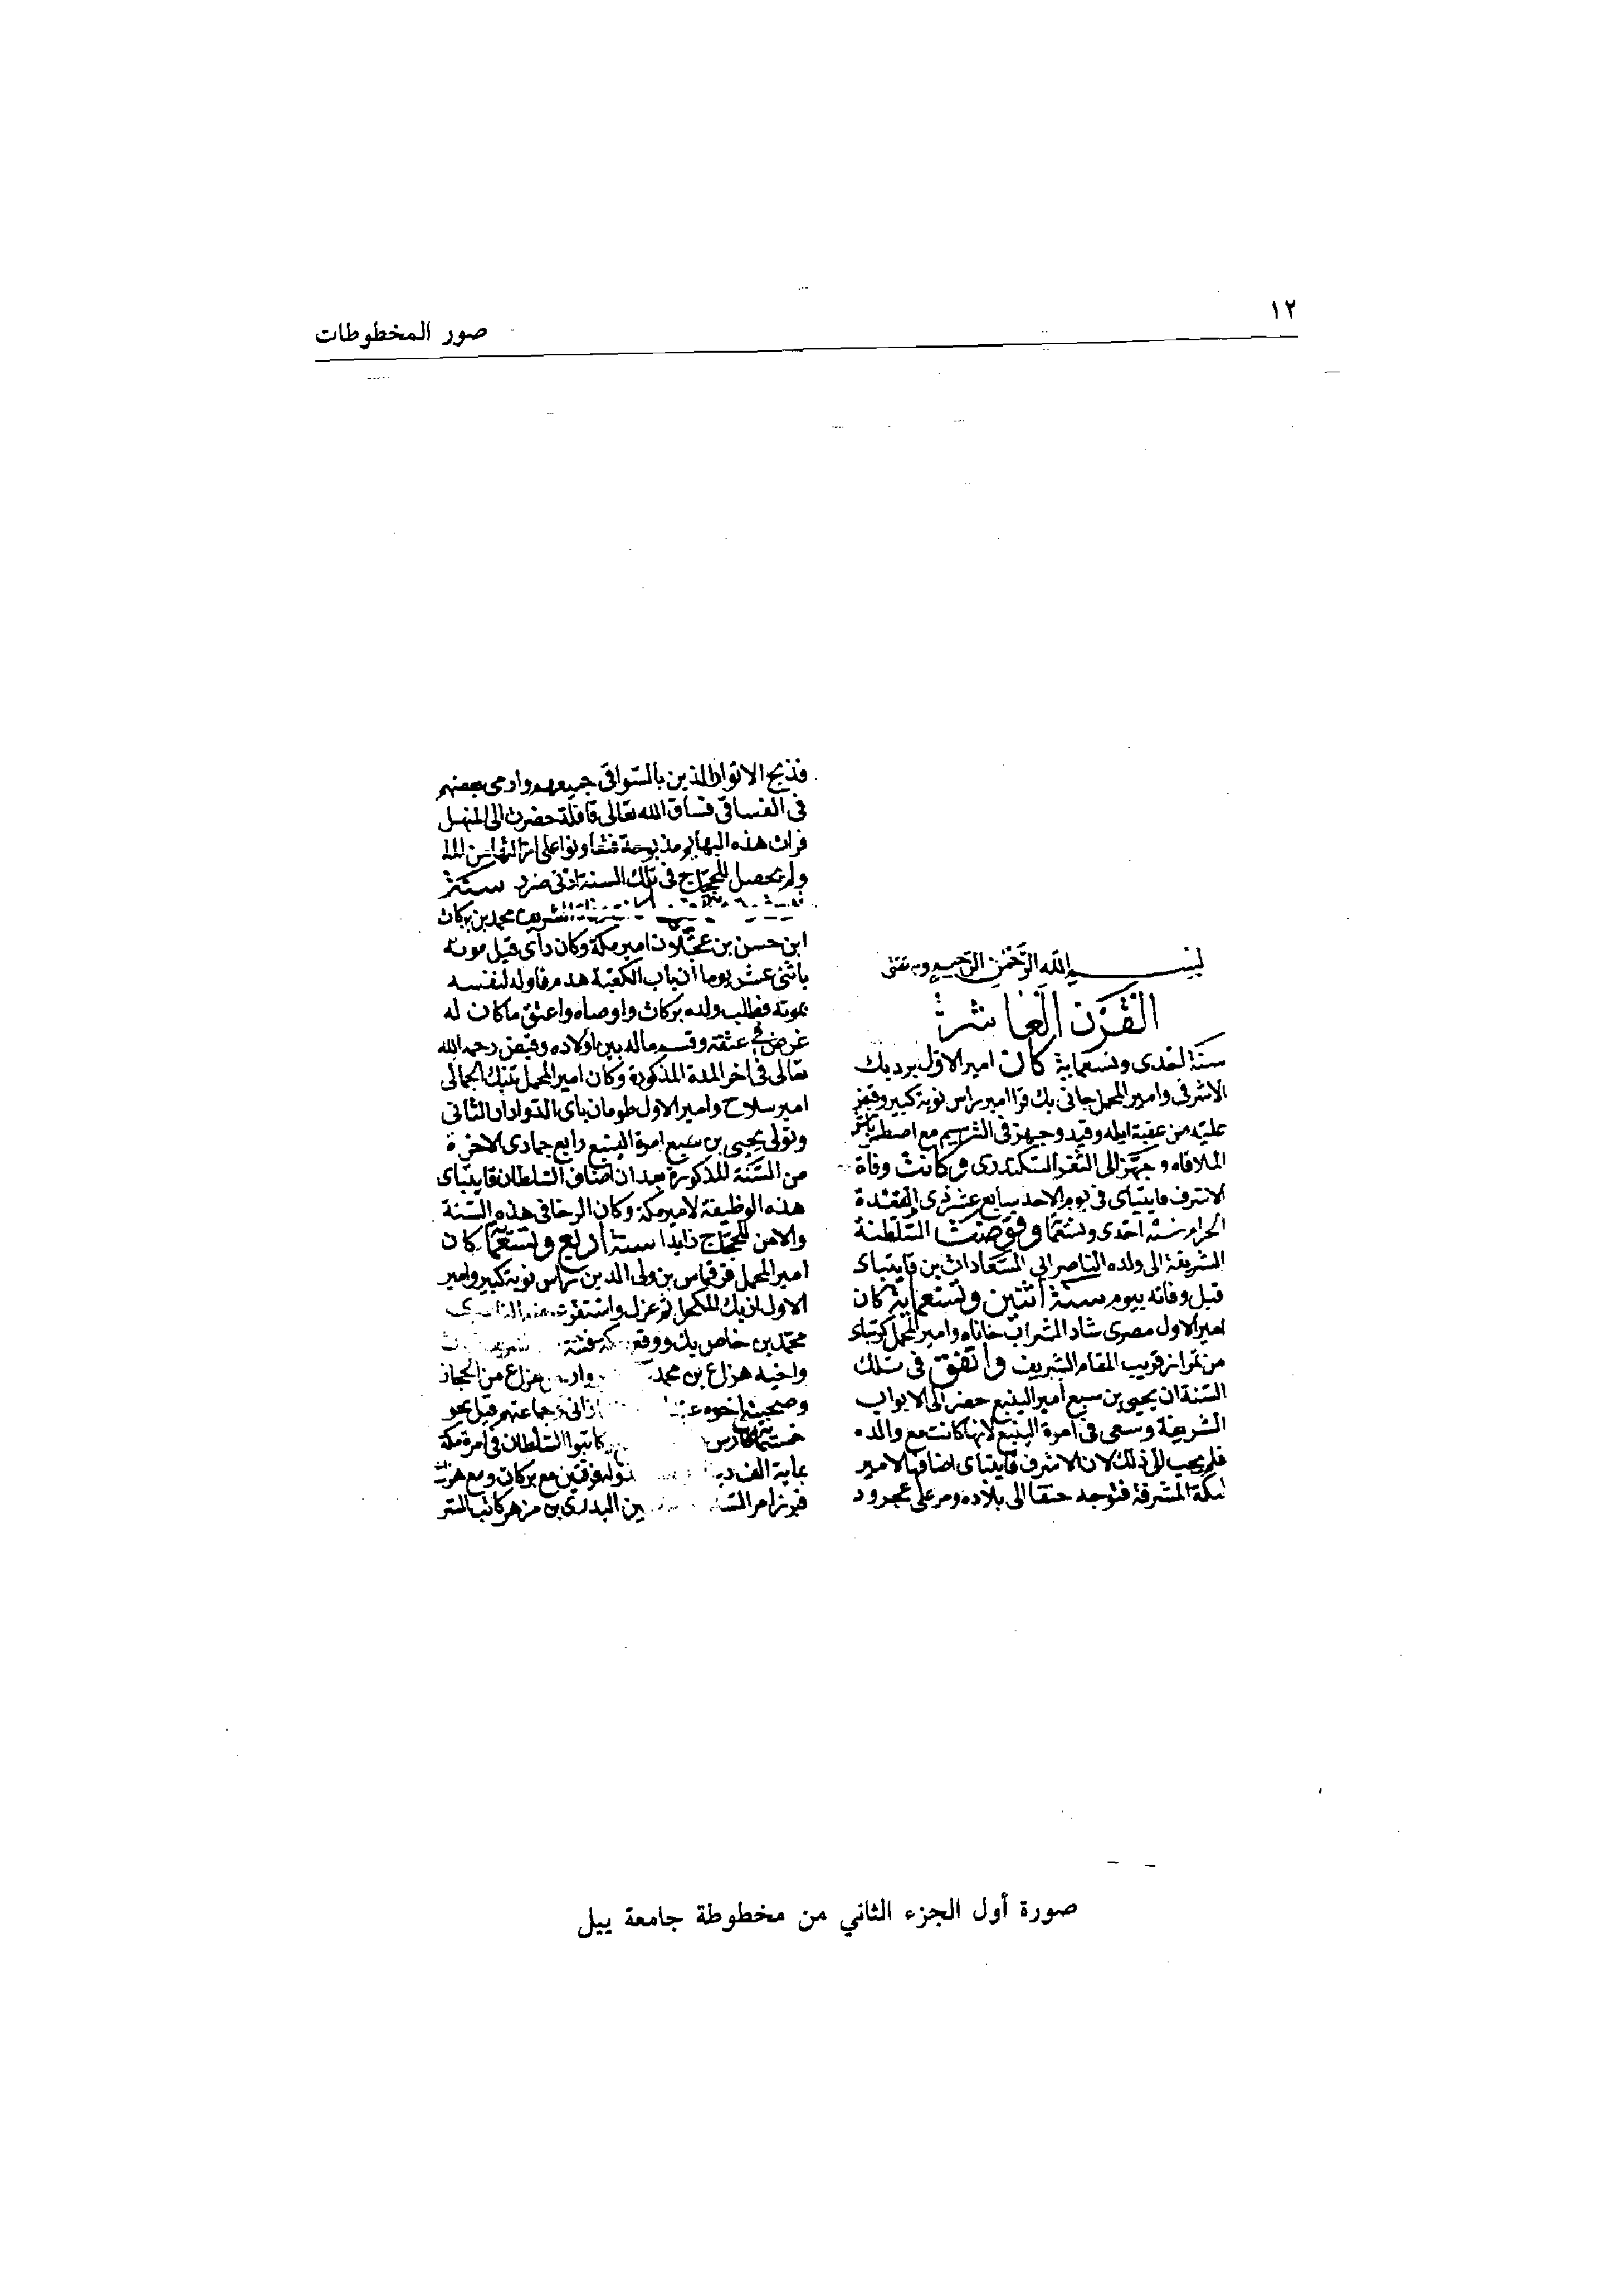 ١٢
صور المخطوطات
بسم الله الرحمن الرحيم وبه ثقتي
القرن العاشر
سنة احدى وتسعماية كان امير الاول برديك
الاشرفي وامير المحمل جاني بك قرا امير راس نوبة كبير وقبض
عليه من عقبة ايله وقيد وجهز في الترسيم مع اصطمر
الملاقاه وجهز الى الثغر السكندري وكانت وفاة
الاشرف قايتباى في يوم الاحد سابع عشر ذى القعدة
الحرام سنة احدى وتسعما وفوضت السلطنة
الشريفة الى ولده الناصر ابي السعادات بن قايتباى
قبل وفاته بيوم سنة اثنتين وتسعماية كان
امير الاول مصرى شاد الشراب خاناه وامير المحمل كرتباى
من تمراز قريب المقام الشريف واتفق في تلك
السنة ان يحيى بن سبع امير الينبع حضر الى الابواب
الشريفة وسعى في امرة الينبع لانها كانت مع والده
فلم يجب الى ذلك لان الاشرف قايتباى اضافها لامير
مكة المشرفة فتوجه حنقا الى بلاده ومر على عجرود
فذبح الاثوار الذين بالسواقي جميعهم وارمى بعضهم
في الفساقي فساق الله تعالى قافلة حضرت الى المنهل
فرات هذه البهايم مذبوحة فتعاونوا على
ولم يحصل للحجاج في تلك السنة ادنى ضرر سنة
الشريف محمد بن بركات
ابن حسن بن عجلان امير مكة وكان راى قبل موته
باثنى عشر يوما ان باب الكعبة هدم فاوله لنفسه
بموته فطلب ولده بركات واوصاه واعتق ما كان له
غرض في عتقه وقسم ماله بين اولاده وقبض رحمه الله
تعالى في اخر المدة المذكورة وكان امير المحمل تنبك الجمالى
امير سلاح وامير الاول طومان باى الدوادار الثاني
وتولى يحيى بن سبع امرة الينبع رابع جمادى الاخرة
من السنة المذكورة بعد ان اضاف السلطان قايتباى
هذه الوظيفة لامير مكة وكان الرخا في هذه السنة
والامن للحجاج زايدا سنة اربع وتسعما كان
امير المحمل قرقماس بن ولى الدين راس نوبة كبير وامير
الاول ازبك المكحل ثم عزل واستقر
محمد بن خاص بك ووقع فتنة
واخيه هزاع بن محمد هزاع من الحجاز
وصحبته اخوه وجماعتهم قبل نحو
خمسماية فارس كاتبوا السلطان في امرة مكة
بماية الف مع بركات ومع هزاع
فبرز امر بن البدرى بن مزهر كاتب السر
صورة أول الجزء الثاني من مخطوطة جامعة ييل